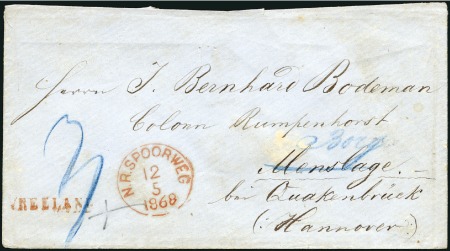 Herrn J. Bernhard Bodeman
Colonn Rumpenhorst
Borg
Menslage.
bei Quakenbrück
(: Hannover :)
3
N.R.SPOORWEG
12
5
1868
VREELAND